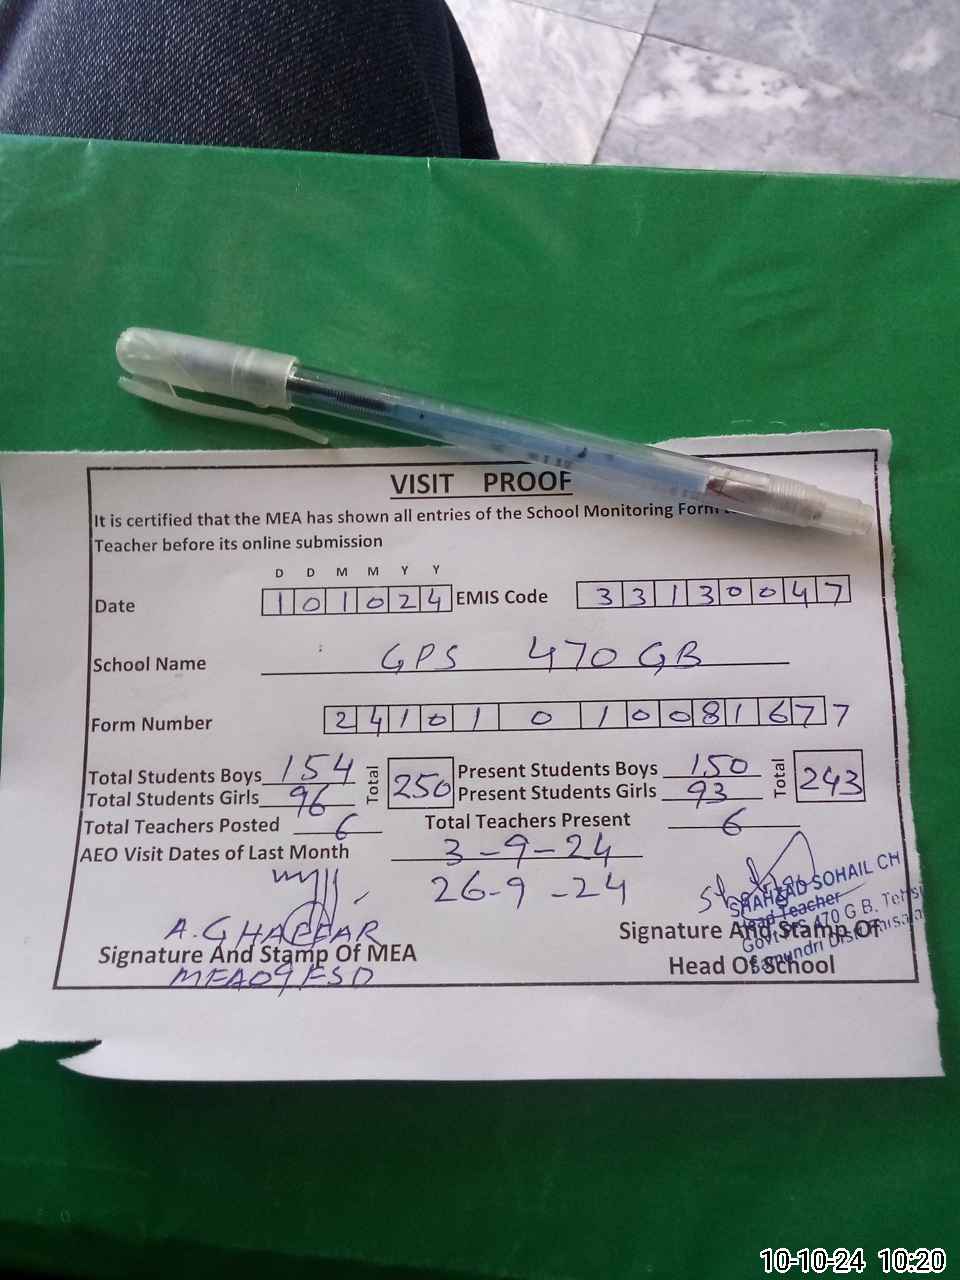 VISIT PROOF
It is certified that the MEA has shown all entries of the School Monitoring Form
Teacher before its online submission
D D M M Y Y
Date 101024 EMIS Code 33130047
School Name GPS 470 GB
Form Number 24101010081677
Total Students Boys 154 Total 250 Present Students Boys 150 Total 243
Total Students Girls 96 Present Students Girls 93
Total Teachers Posted 6 Total Teachers Present 6
AEO Visit Dates of Last Month 3-9-24
26-9-24
A.GHAFFAR
Signature And Stamp Of MEA
MEA09FSD
SHAHZAD SOHAIL CH
Head Teacher
Signature And Stamp Of
Govt. P/S 470 G B. Tehsil
Samundri Distt. Faisala
Head Of School
10-10-24 10:20